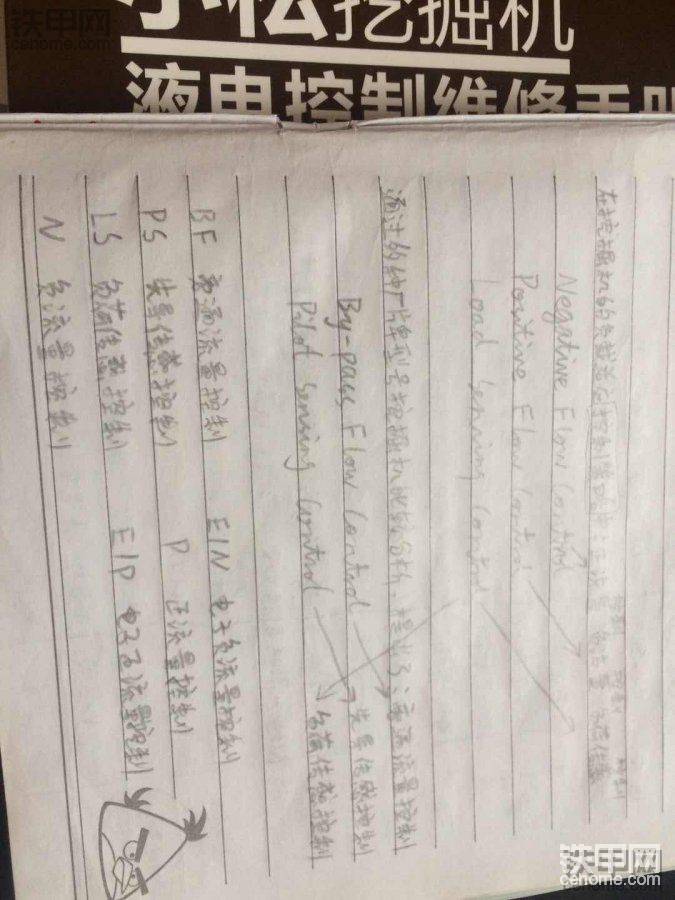 铁甲网
cehome.com
小松挖掘机
液电控制维修手册
在挖掘机的负载适应控制策略中:正流量控制 负流量控制 负荷传感控制
Negative Flow Control
Positive Flow Control
Load Sensing Control
通过的各种厂牌型号挖掘机比较分析,提出了:旁通流量控制
By-pass Flow Control 先导传感控制
Pilot Sensing Control 负荷传感控制
BF 旁通流量控制 E/N 电子负流量控制
PS 先导传感控制 P 正流量控制
LS 负荷传感控制 E/P 电子正流量控制
N 负流量控制
铁甲网
cehome.com